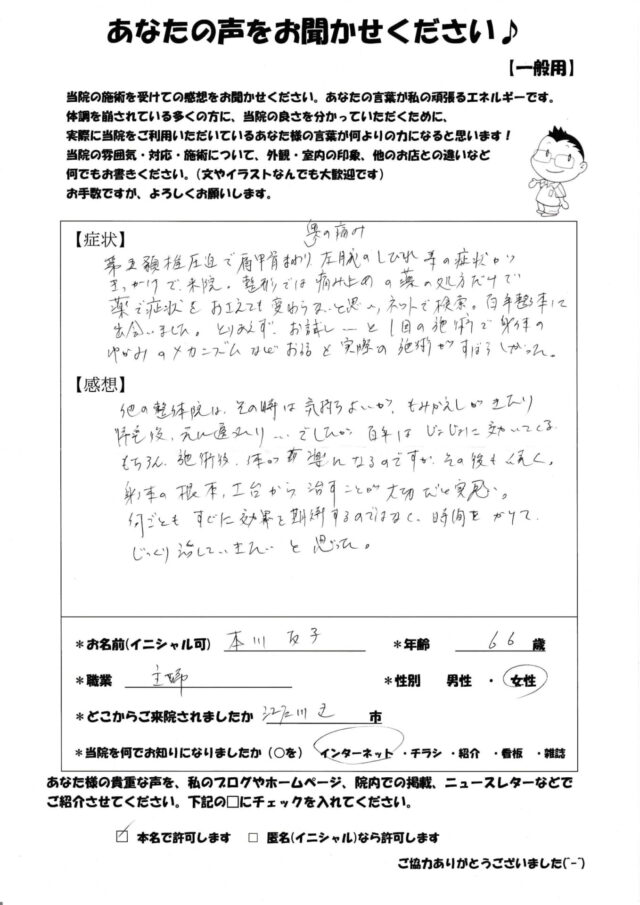 あなたの声をお聞かせください♪
【一般用】
当院の施術を受けての感想をお聞かせください。あなたの言葉が私の頑張るエネルギーです。
体調を崩されている多くの方に、当院の良さを分かっていただくために、
実際に当院をご利用いただいているあなた様の言葉が何よりの力になると思います!
当院の雰囲気・対応・施術について、外観・室内の印象、他のお店との違いなど
何でもお書きください。(文やイラストなんでも大歓迎です)
お手数ですが、よろしくお願いします。
【症状】
の痛み
第五頚椎圧迫で肩甲骨まわり 左腕のしびれ 等の症状が
きっかけで来院。整形では痛み止めの薬の処方だけで
薬で症状をおさえても変わらないと思い、ネットで検索。百年整体に
出会いました。とりあえず、お試し…と1回の施術で身体の
ゆがみのメカニズムなどお話と実際の施術がすばらしかった。
【感想】
他の整体院は、その時は気持ちよいが、もみかえしがきたり
帰宅後、元に戻ったり…でしたが 百年は じょじょに効いてくる
もちろん、施術後、体が楽になるのですが、その後も続く。
身体の根本、土台から 治すことが大切だと実感。
何ごとも すぐに効果を期待するのではなく、時間をかけて
じっくり治していきたい と思った。
*お名前(イニシャル可) 本川 友子 *年齢 66 歳
*職業 主婦 *性別 男性 ・ 女性
*どこからご来院されましたか 江戸川区 市
*当院を何でお知りになりましたか(○を) インターネット ・チラシ ・紹介 ・看板 ・雑誌
あなた様の貴重な声を、私のブログやホームページ、院内での掲載、ニュースレターなどで
ご紹介させてください。下記の□にチェックを入れてください。
☑ 本名で許可します □ 匿名(イニシャル)なら許可します
ご協力ありがとうございました(^-^)